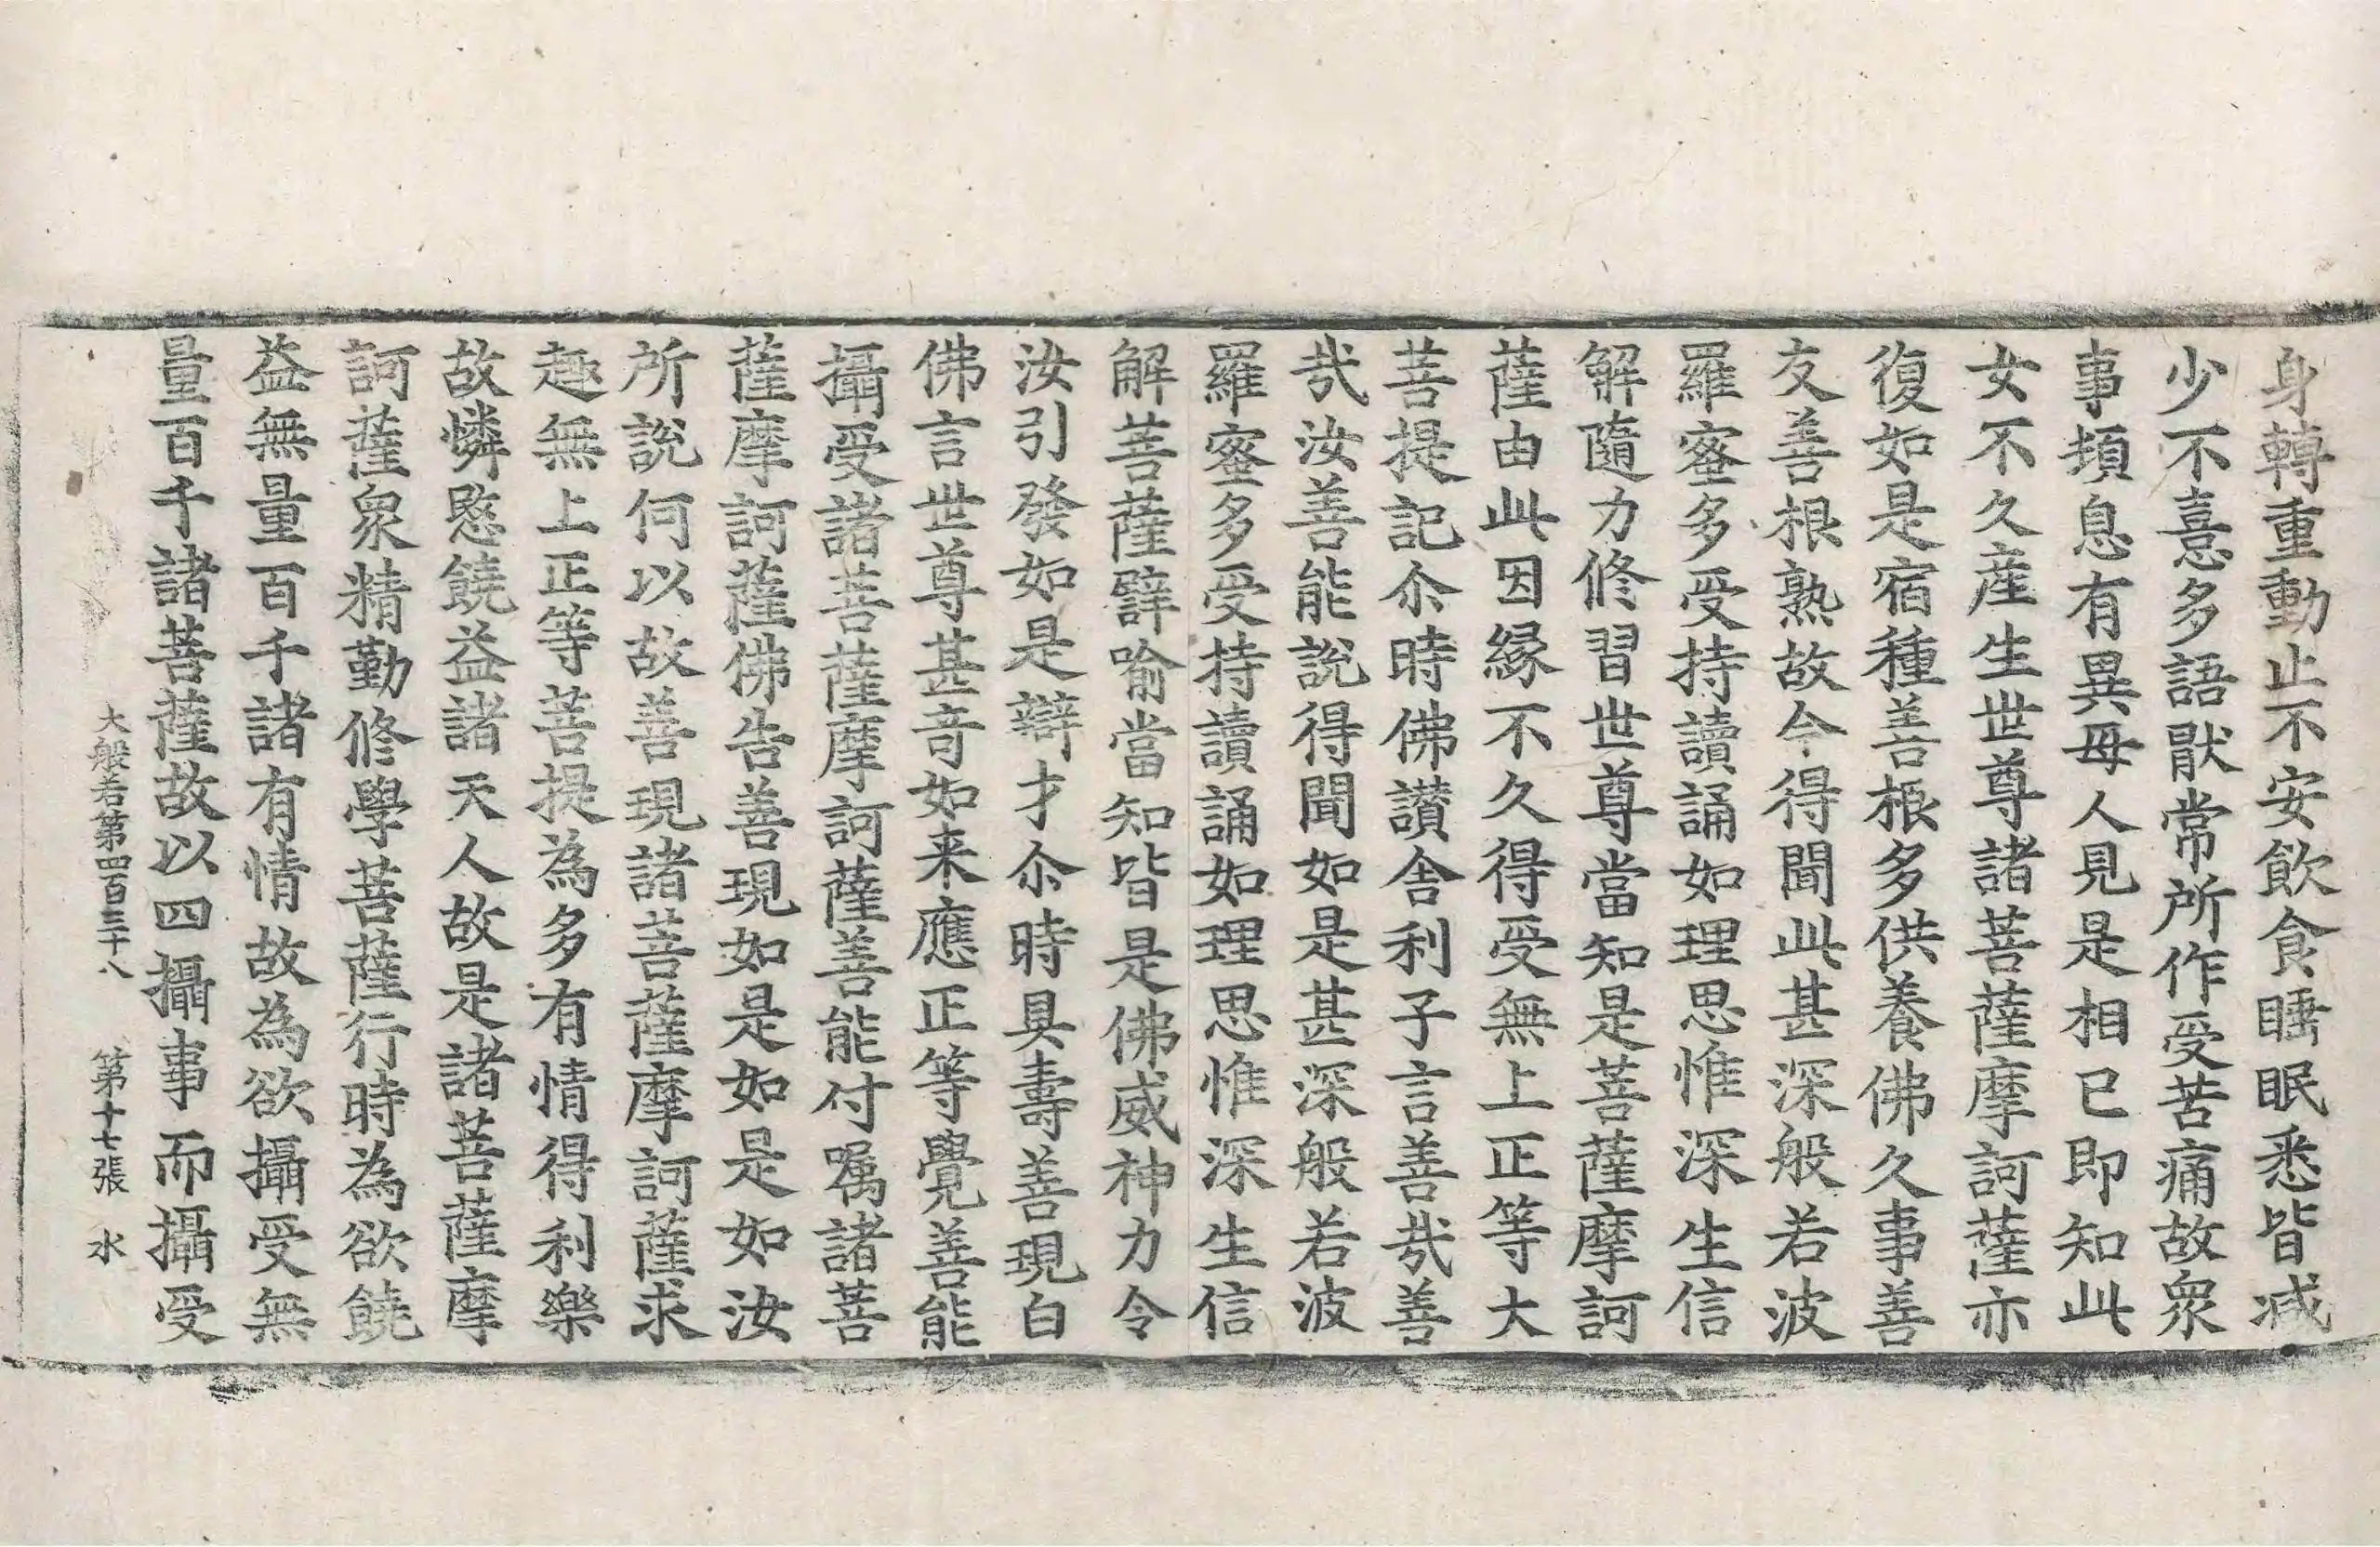 身轉重動止不安飲食睡眠悉皆减
少不憙多語猒常所作受苦痛故衆
事頓息有異母人見是相已即知此
女不久産生世尊諸菩薩摩訶薩亦
復如是宿種善根多供養佛久事善
友善根熟故今得聞此甚深般若波
羅蜜多受持讀誦如理思惟深生信
解隨力修習世尊當知是菩薩摩訶
薩由此因縁不久得受無上正等大
菩提記尒時佛讃舍利子言善㢤善
㢤汝善能說得聞如是甚深般若波
羅蜜多受持讀誦如理思惟深生信
解菩薩譬喻當知皆是佛威神力令
汝引發如是辯才尒時具壽善現白
佛言世尊甚奇如来應正等覺善能
攝受諸菩薩摩訶薩善能付嘱諸菩
薩摩訶薩佛告善現如是如是如汝
所說何以故善現諸菩薩摩訶薩求
趣無上正等菩提為多有情得利樂
故憐愍饒益諸天人故是諸菩薩摩
訶薩衆精勤修學菩薩行時為欲饒
益無量百千諸有情故為欲攝受無
量百千諸菩薩故以四攝事而攝受
大般若第四百三十八 第十七張 水